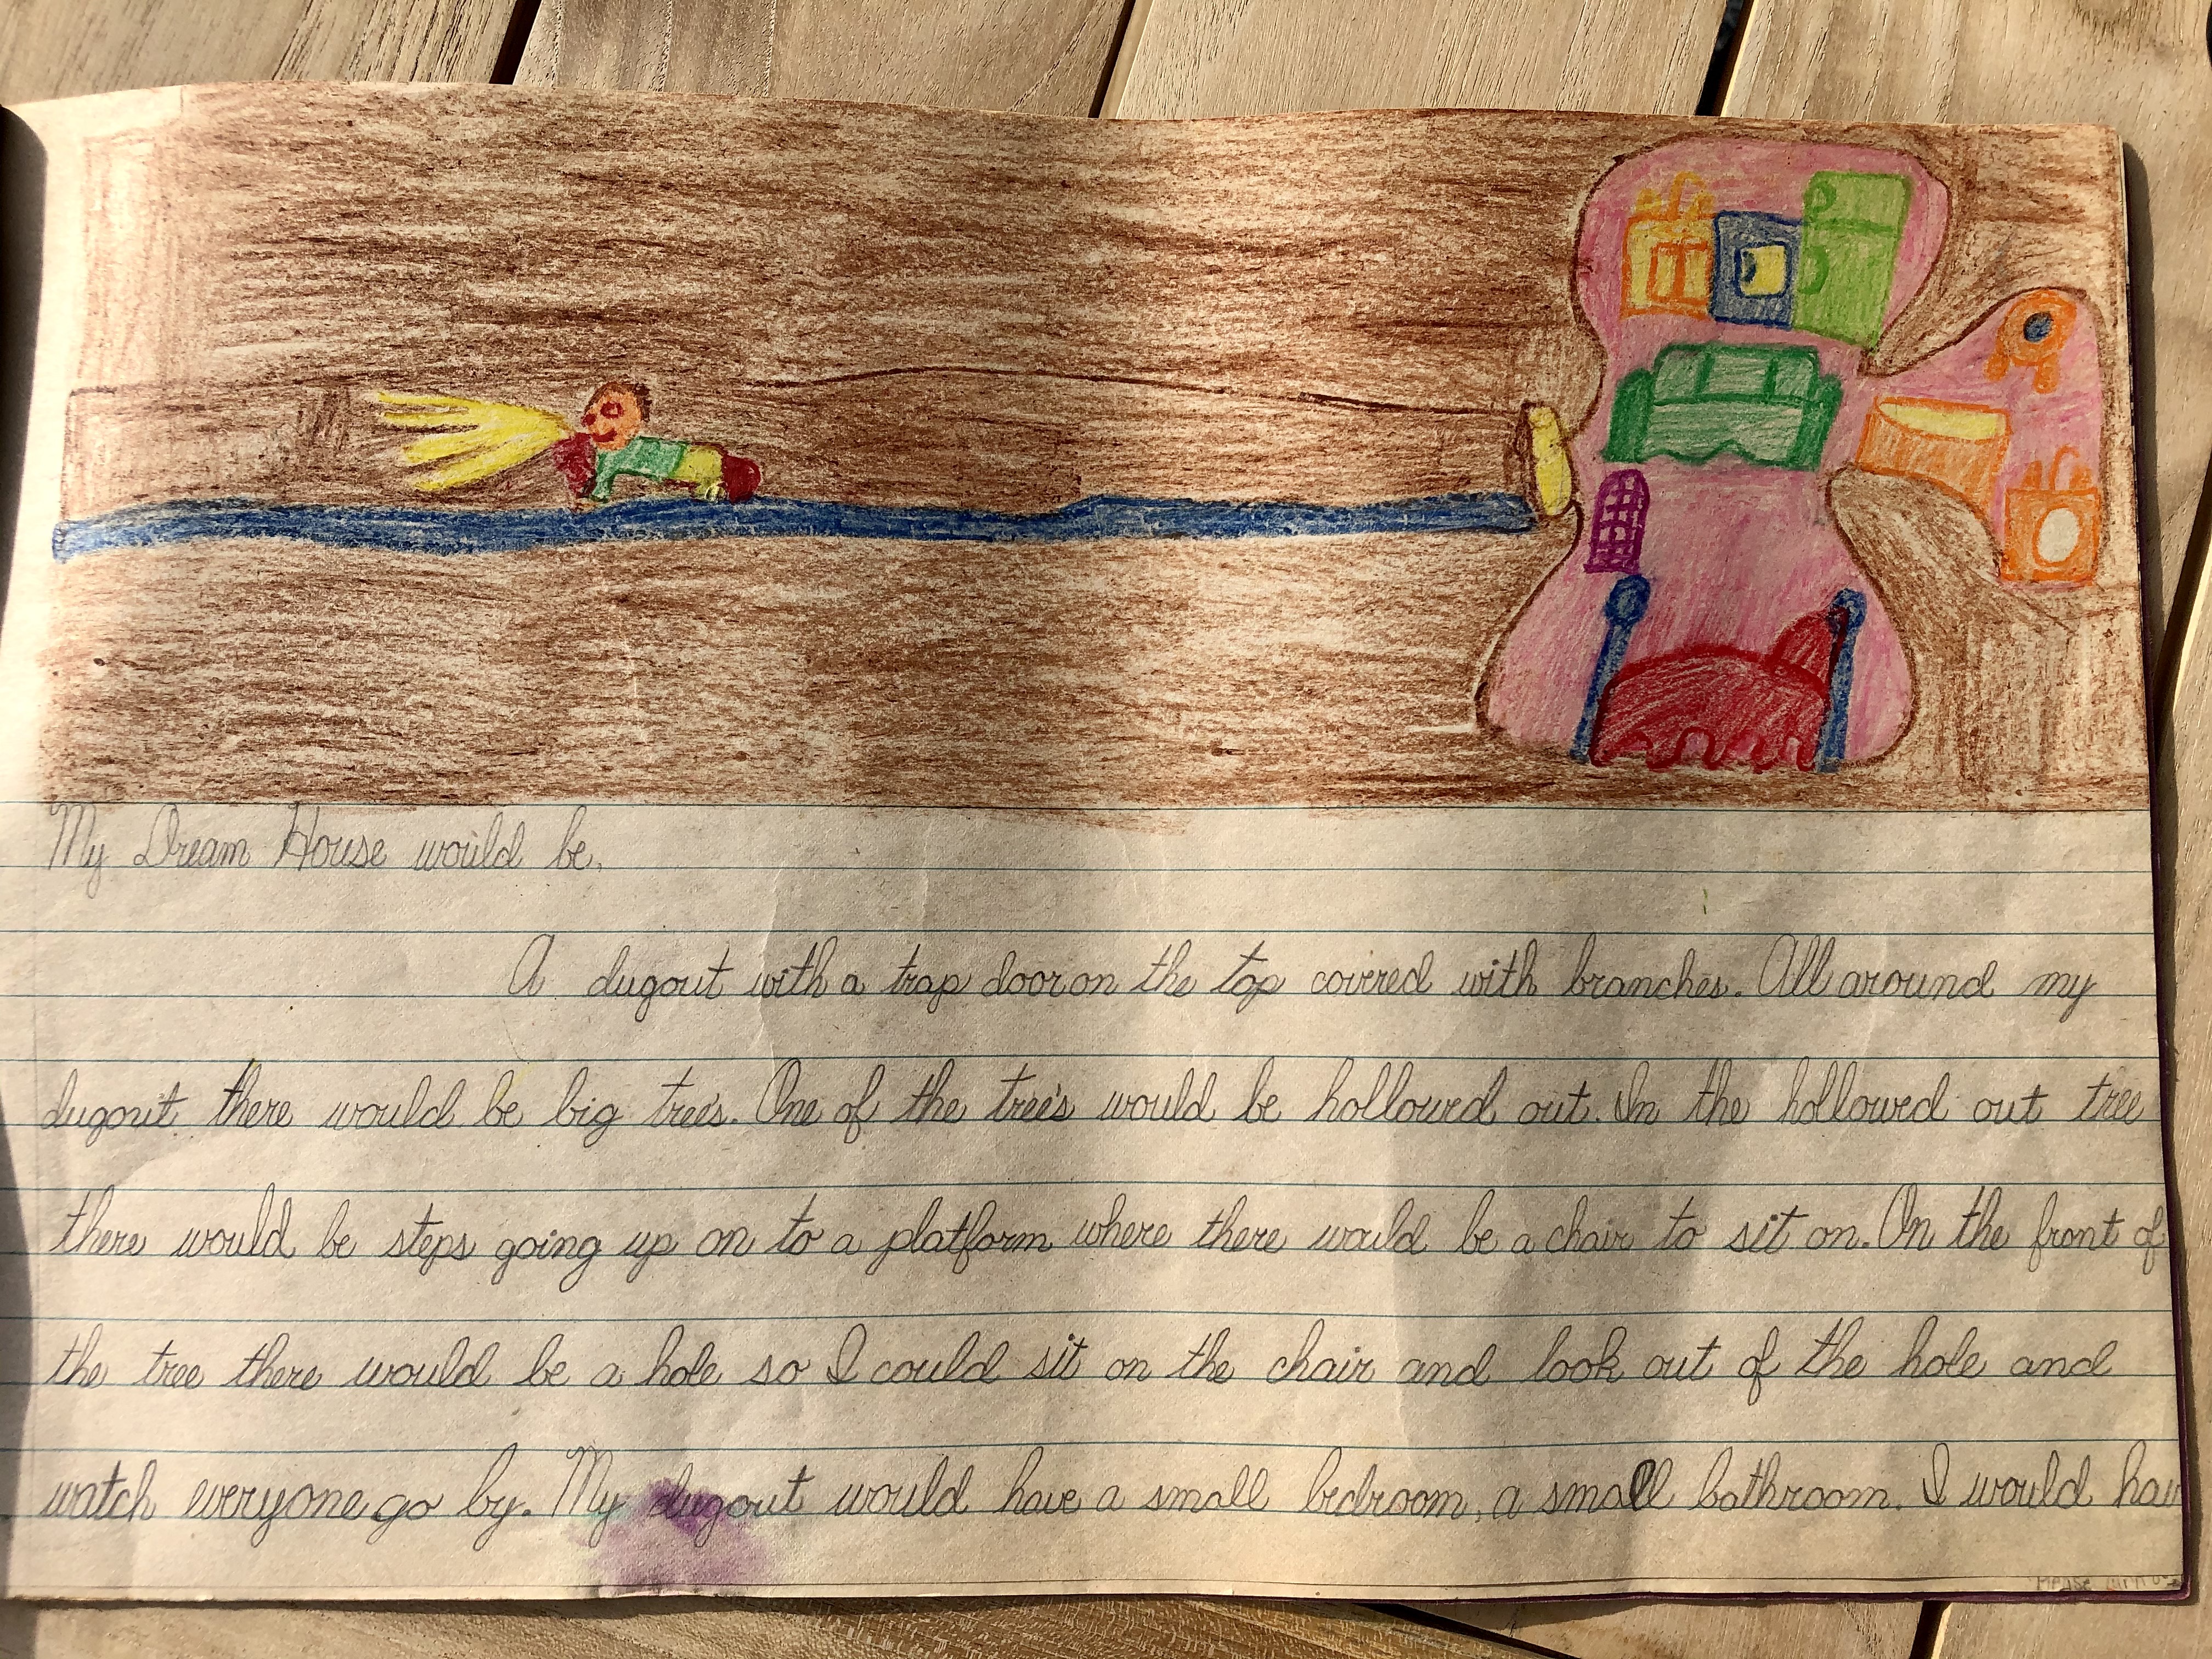 My Dream House would be,
A dugout with a trap door on the top covered with branches. All around my
dugout there would be big trees. One of the trees would be hollowed out. In the hollowed out tree
there would be steps going up on to a platform where there would be a chair to sit on. On the front of
the tree there would be a hole so I could sit on the chair and look out of the hole and
watch everyone go by. My dugout would have a small bedroom, a small bathroom. I would hav
Please